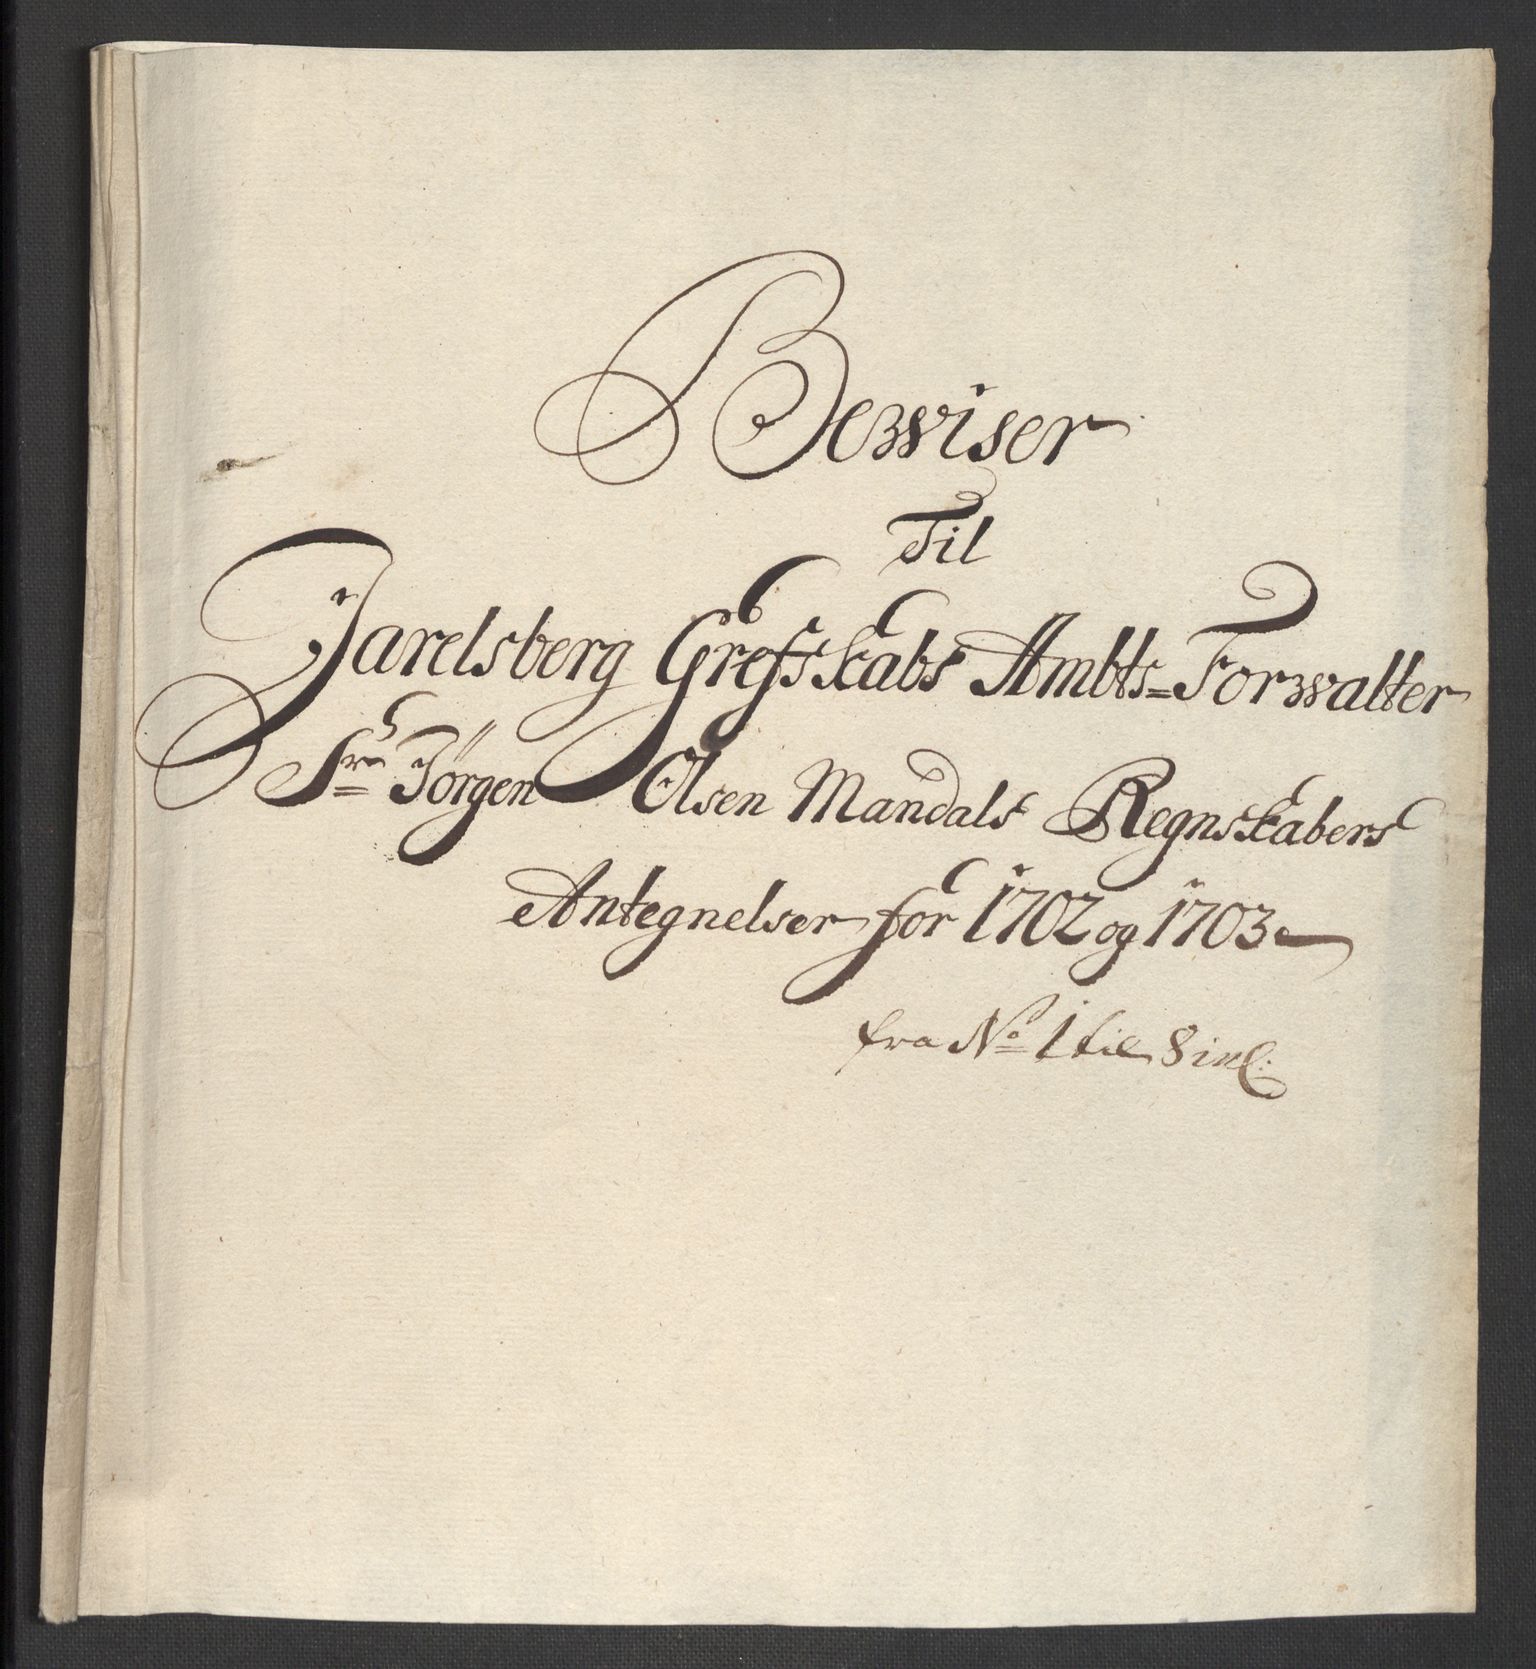 Bewiser
Til
Jarelsberg Grefsskabs Ambts=Forwalter
Sr Jörgen Olsen Mandals Regnskabers
Antegnelser for 1702 og 1703
fra No 1 til 8 inl: